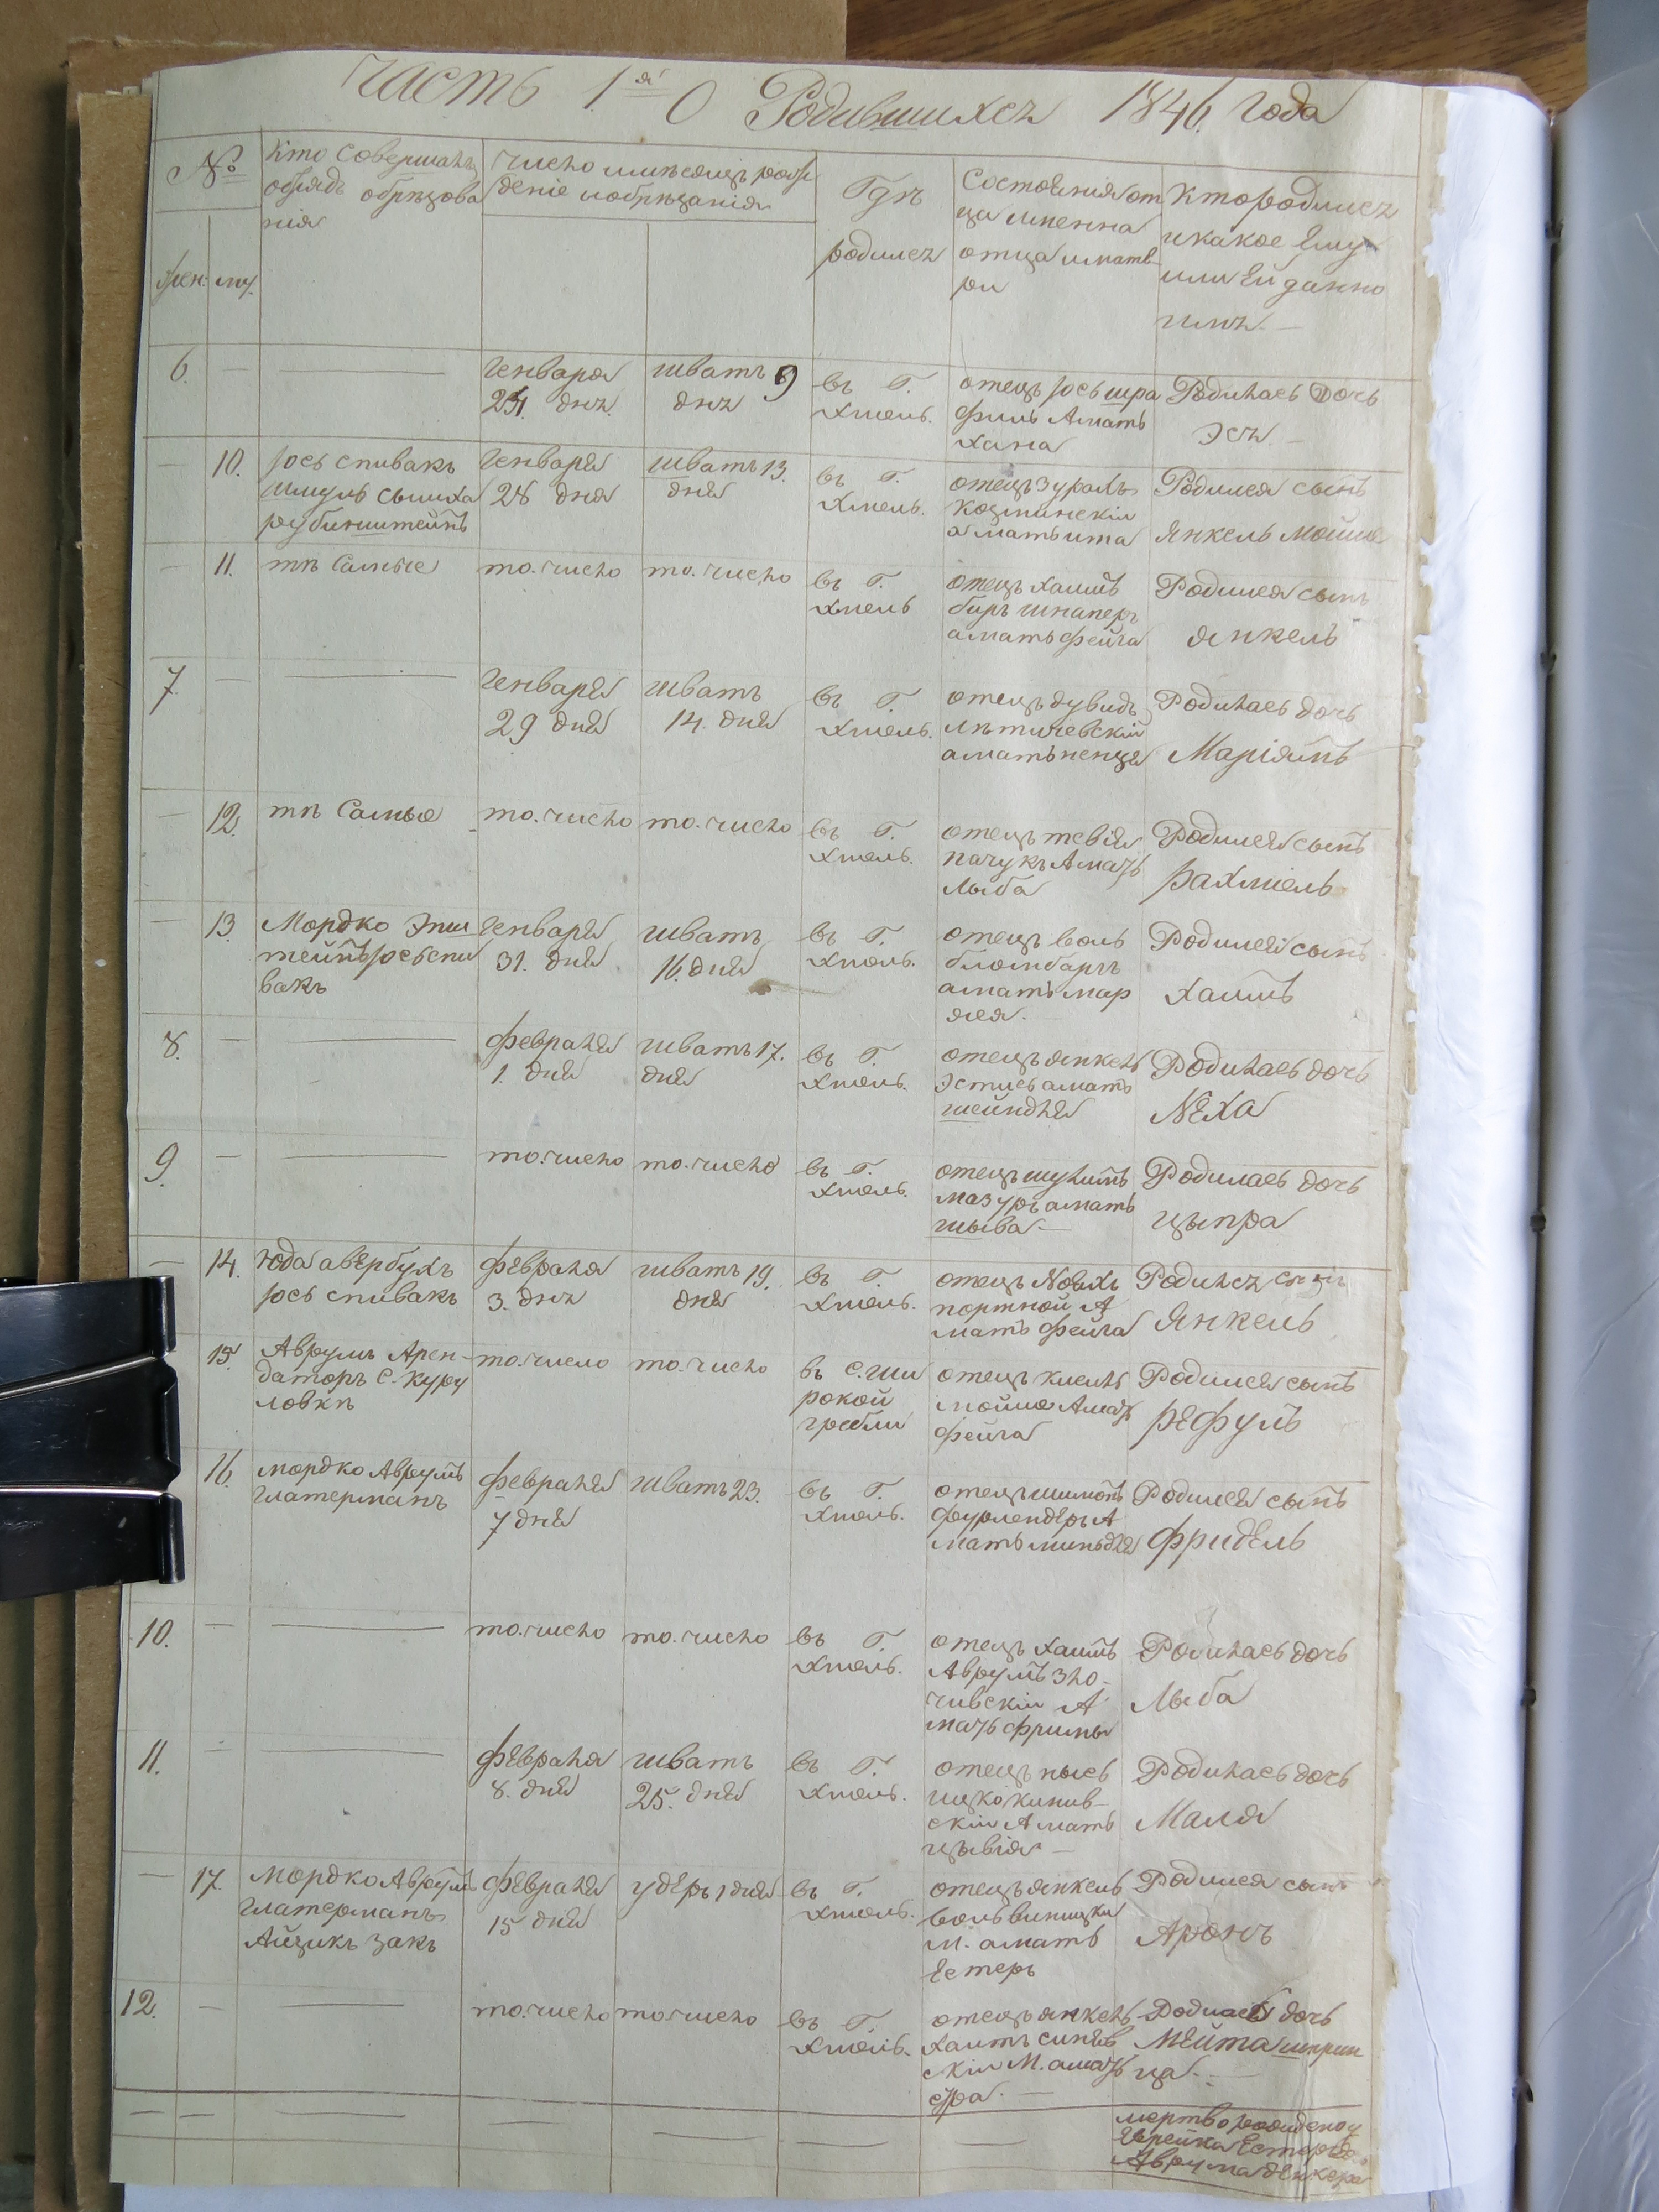 Часть 1я О Родившихся 1846. года
№
Кто Совершалъ
обрядъ обрѣзова
нія
число имѣсяцъ рож
деніе иобрѣзанія
Гдѣ
родился
Состоянія от
ца имена
отца имате
ри
Кто родился
икакое Ему
или Ей данно
имя
жен. му.
6.
Генваря
24 дня.
шватъ 9
дня
въ Г.
Хмель.
отецъ Іось шра
филь Амать
хана
Родилась Дочь
Эся.
10.
Іось спивакъ
Шмуль сымха
рубинштейнъ
Генваря
28 дня
шватъ 13.
дня
въ Г.
Хмель.
отецъ Зурахъ
Козминскій
амать ита
Родился сынъ
Янкель Мойше
11.
тѣ Самые
то. число
то. число
въ Г.
Хмель
отецъ Хаимъ
беръ шнаперъ
амать фейга
Родился сынъ
Янкель
7.
Генваря
29 дня
шватъ
14. дня
въ Г.
Хмель.
отецъ дувидъ
лѣтичевскій
амать ненця
Родилась дочь
Маріямъ
12.
тѣ Самые
то. число
то. число
въ Г.
Хмель.
отецъ тевія
пачукъ Амать
Лыба
Родился сынъ
Рахміель
13.
Мордко Эпш
тейнъ Іось спи
вакъ
Генваря
31. дня
шватъ
16. дня
въ Г.
Хмель.
отецъ воль
бломбаргъ
амать мар
яся.
Родился сынъ
Хаимъ
8.
февраля
1. дня
шватъ 17.
дня
въ Г.
Хмель.
отецъ янкель
Эстисъ амать
шейндля
Родилась дочь
Nеха
9.
то. число
то. число
въ Г.
Хмель.
отецъ шулимъ
мазуръ амать
шыва
Родилась дочь
цыпра
14.
юда авербухъ
Іось спивакъ
февраля
3. дня
шватъ 19.
дня
въ Г.
Хмель.
отецъ Nоахъ
портной А
мать фейга
Родился сынъ
Янкель
15.
Аврумъ Арен-
даторъ С. Куру
ловкѣ
то. число
то. число
въ с. Ши
рокой
гребли
отецъ кисиль
мойше Амать
фейга
Родился сынъ
Рефулъ
16.
мордко Аврумъ
глатерманъ
февраля
7 дня
шватъ 23.
въ Г.
Хмель.
отецъ шимонъ
фурлендеръ А
мать миньдля
Родился сынъ
фридель
10.
то. число
то. число
въ Г.
Хмель.
отецъ Хаимъ
Аврумъ Зло-
чивскій А
мать фримы
Родилась дочь
Лыба
11.
февраля
8. дня
шватъ
25. дня
въ Г.
Хмель.
отецъ пысъ
ицко кинив-
скій Амать
цывія
Родилась дочь
Маля
17.
Мордко Аврумъ
глатерманъ
Айзикъ Закъ
февраля
15 дня
удеръ 1 дня
въ Г.
Хмель.
отецъ янкель
воль виницки
М. амать
Естеръ
Родился сынъ
Аронъ
12.
то. число
то число
въ Г.
Хмель.
отецъ янкель
Хаимъ синяв
скій М. амать
сура.
Родилась дочь
Мейта шприн
ца.
мертворожденоу
Еврейка Естеръ до.
Аврума денкера